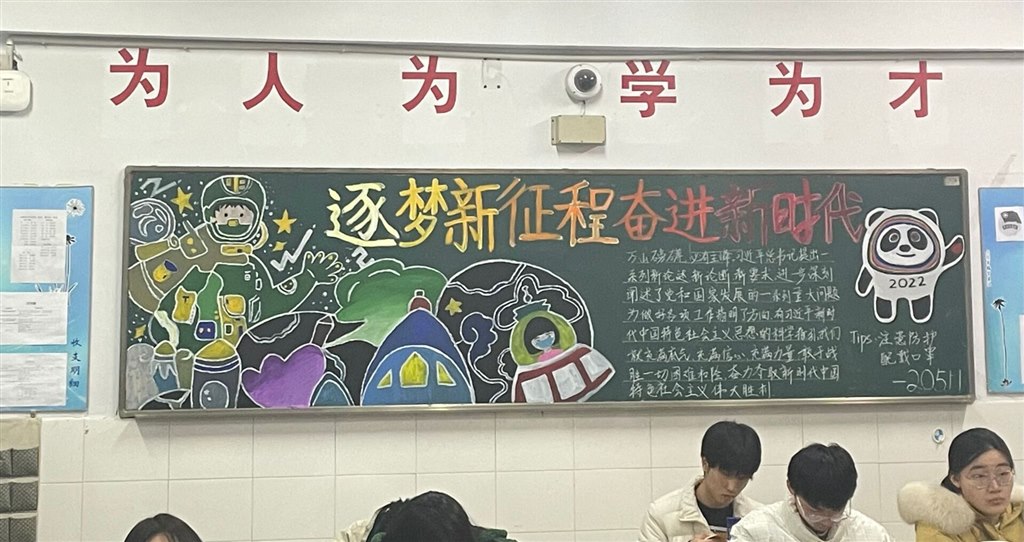 为人为学为才
逐梦新征程奋进新时代
万山磅礴必有主峰,习近平总书记提出一
系列新论述新论图新要求,进一步深刻
阐述了党和国家发展的一系列重大问题
为做好各项工作指明了方向,有习近平新时
代中国特色社会主义思想的科学指引,我们
就充满信心 充满力量 敢于战
胜一切困难和险 奋力夺取新时代中国
特色社会主义伟大胜利
2022
Tips:注意防护
配戴口罩
-20511
收支明细